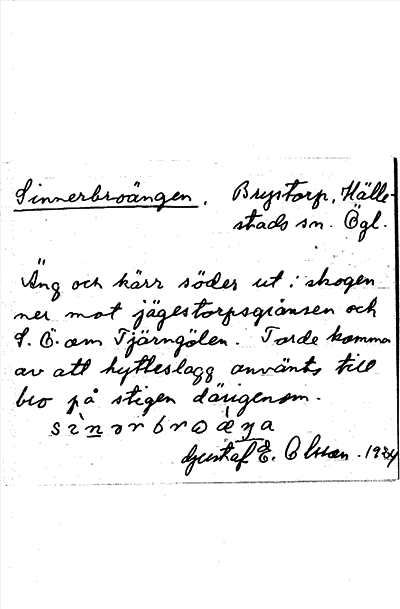 Sinnerbroängen. Brystorp, Hälle-
stads sn. Ögl.
Äng och kärr söder ut i skogen
ner mot jägestorpsgränsen och
S. Ö. om Tjärngölen. Torde komma
av att hytteslagg använts till
bro på stigen därigenom.
Gustaf E. Olsson. 19